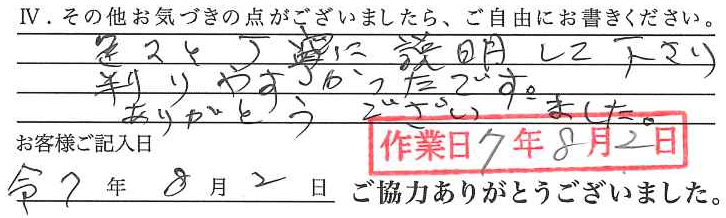 Ⅳ．その他お気づきの点がございましたら、ご自由にお書きください。
丁寧に説明して下さり
判りやすかったです。
ありがとうございました。
お客様ご記入日
作業日7年8月2日
令7年8月2日
ご協力ありがとうございました。